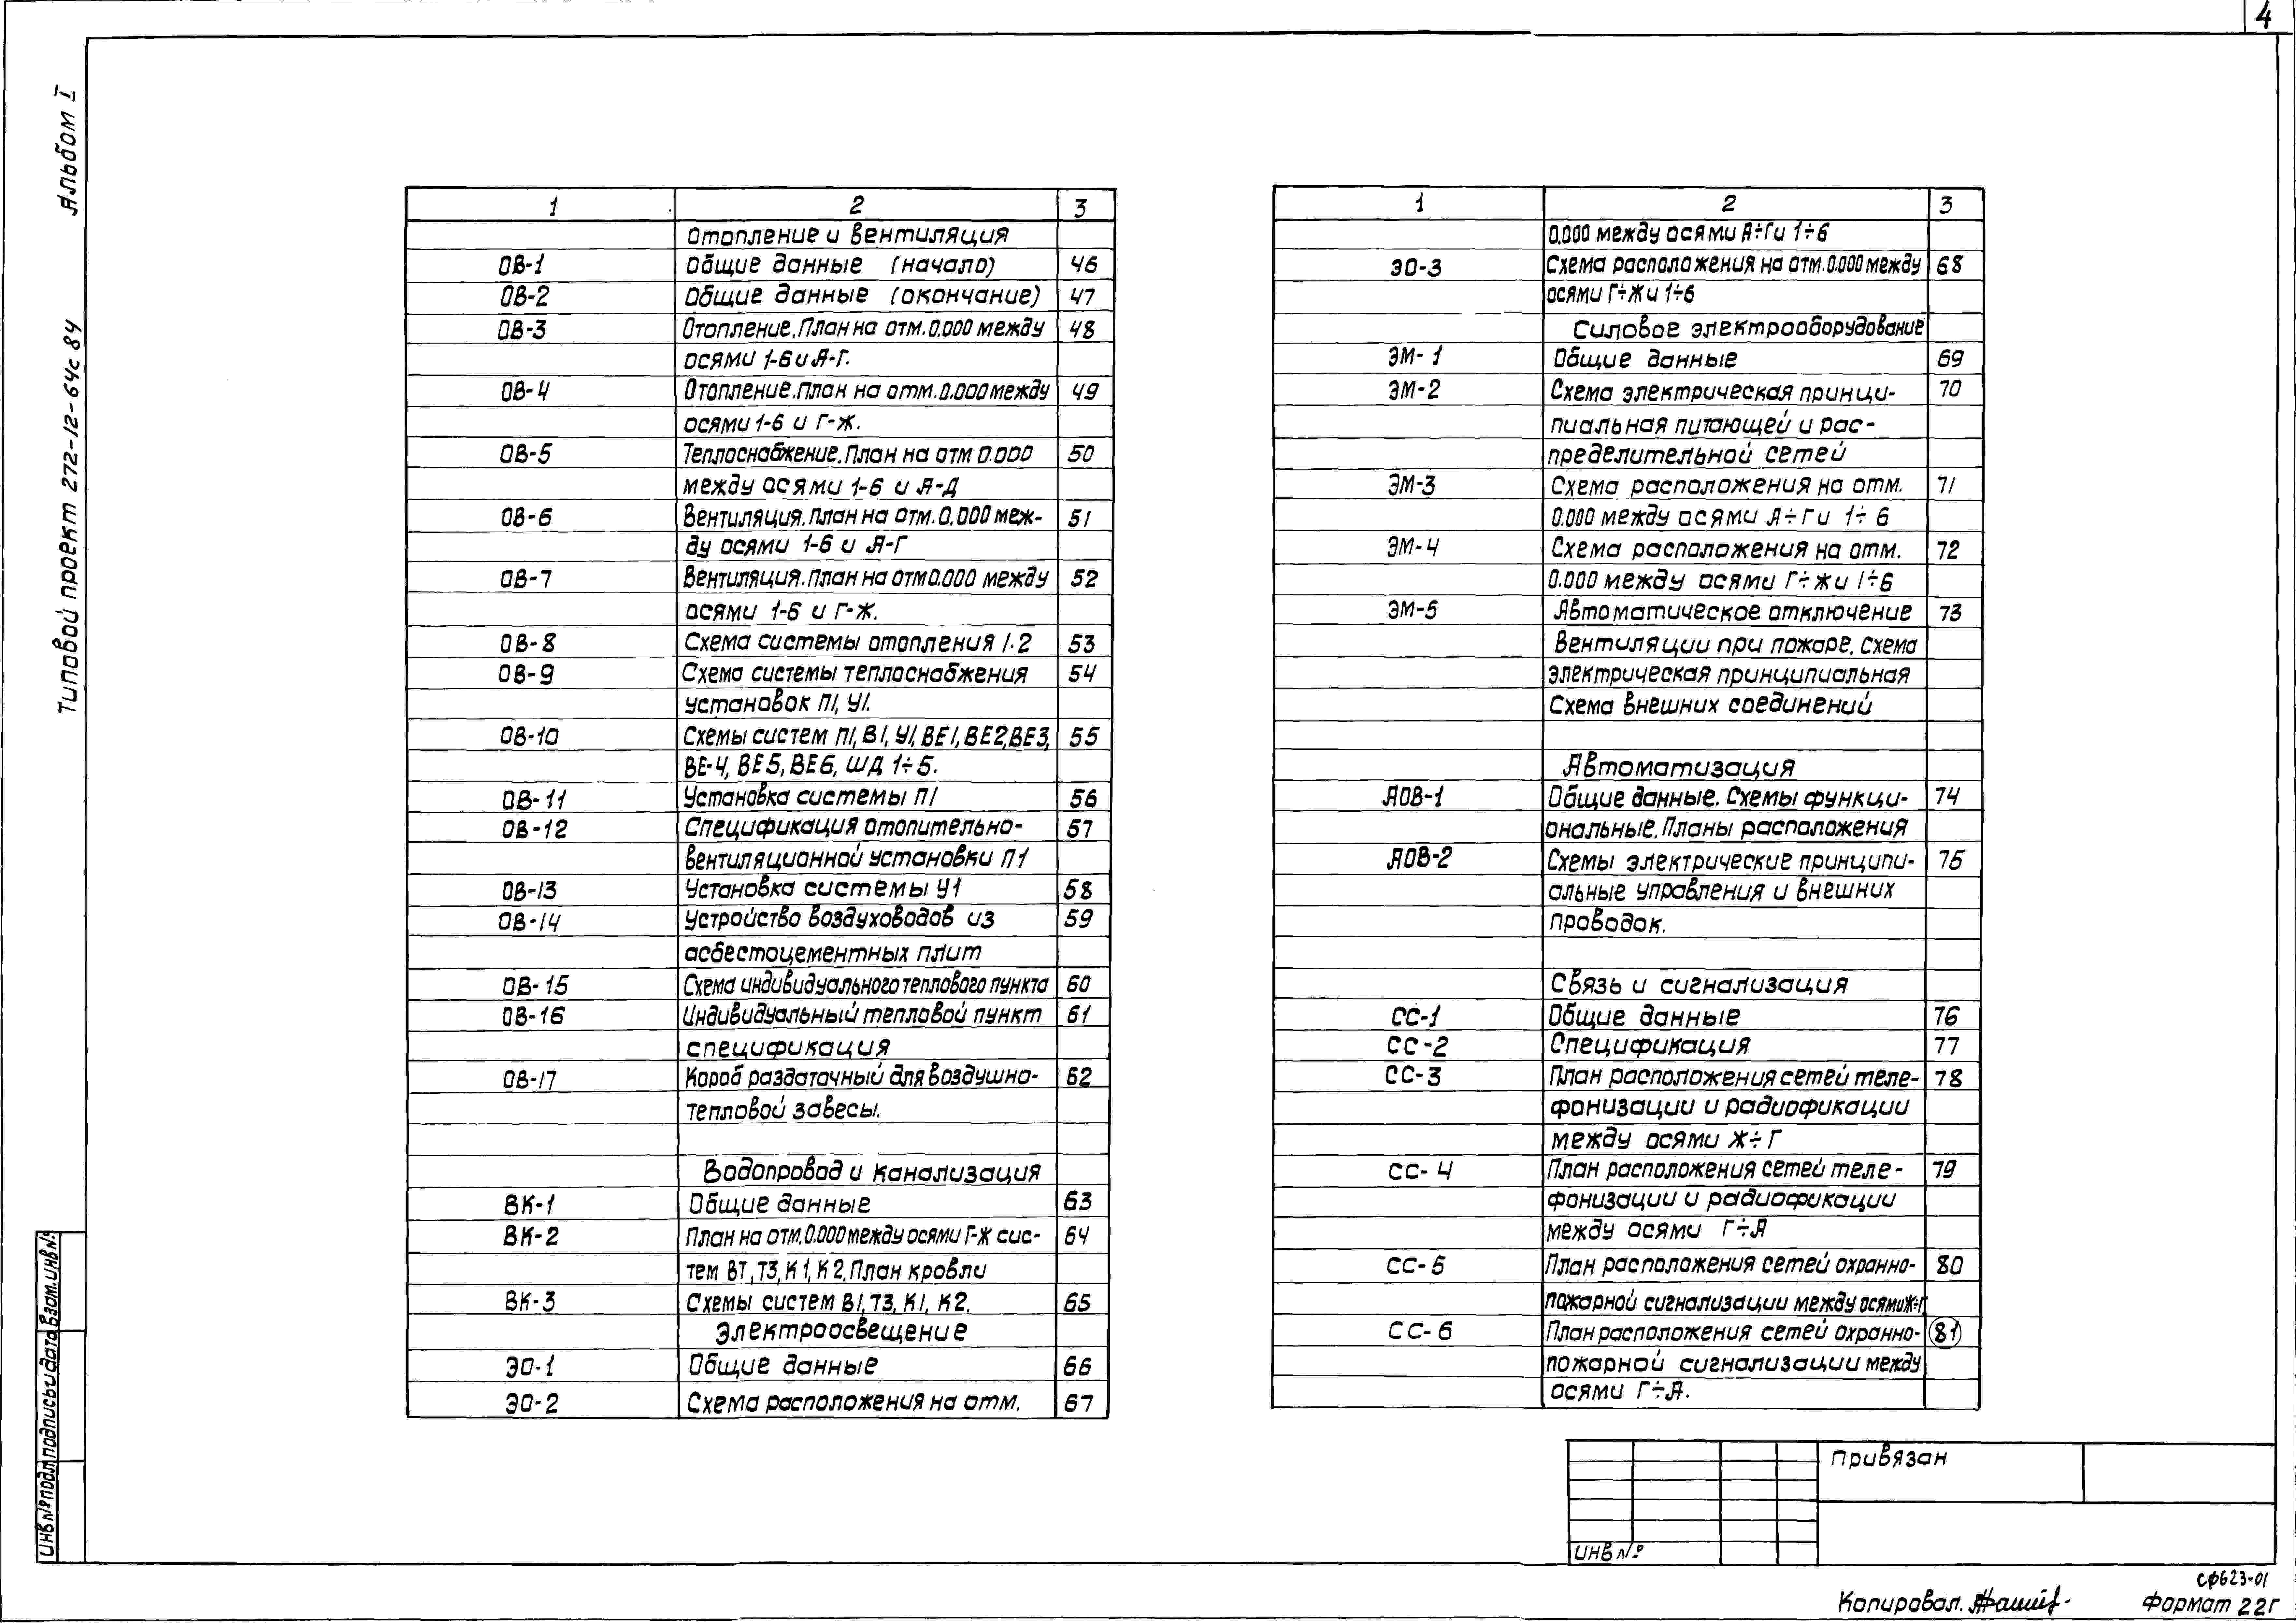 4
Альбом I
Типовой проект 272-12-64с 84
1 2 3
Отопление и вентиляция
ОВ-1 Общие данные (начало) 46
ОВ-2 Общие данные (окончание) 47
ОВ-3 Отопление. План на отм. 0.000 между 48
осями 1-6 и А-Г.
ОВ-4 Отопление. План на отм. 0.000 между 49
осями 1-6 и Г-Ж.
ОВ-5 Теплоснабжение. План на отм 0.000 50
между осями 1-6 и А-Д
ОВ-6 Вентиляция. План на отм. 0.000 меж- 51
ду осями 1-6 и А-Г
ОВ-7 Вентиляция. План на отм 0.000 между 52
осями 1-6 и Г-Ж.
ОВ-8 Схема системы отопления 1.2 53
ОВ-9 Схема системы теплоснабжения 54
установок П1, У1.
ОВ-10 Схемы систем П1, В1, У1, ВЕ1, ВЕ2, ВЕ3, 55
ВЕ-4, ВЕ5, ВЕ6, ШД 1÷5.
ОВ-11 Установка системы П1 56
ОВ-12 Спецификация отопительно- 57
вентиляционной установки П1
ОВ-13 Установка системы У1 58
ОВ-14 Устройство воздуховодов из 59
асбестоцементных плит
ОВ-15 Схема индивидуального теплового пункта 60
ОВ-16 Индивидуальный тепловой пункт 61
спецификация
ОВ-17 Короб раздаточный для воздушно- 62
тепловой завесы.
Водопровод и канализация
ВК-1 Общие данные 63
ВК-2 План на отм. 0.000 между осями Г-Ж сис- 64
тем ВТ, Т3, К1, К2. План кровли
ВК-3 Схемы систем В1, Т3, К1, К2. 65
Электроосвещение
ЭО-1 Общие данные 66
ЭО-2 Схема расположения на отм. 67
1 2 3
0.000 между осями А÷Г и 1÷6
ЭО-3 Схема расположения на отм. 0.000 между 68
осями Г÷Ж и 1÷6
Силовое электрооборудование
ЭМ-1 Общие данные 69
ЭМ-2 Схема электрическая принци- 70
пиальная питающей и рас-
пределительной сетей
ЭМ-3 Схема расположения на отм. 71
0.000 между осями А÷Г и 1÷6
ЭМ-4 Схема расположения на отм. 72
0.000 между осями Г÷Ж и 1÷6
ЭМ-5 Автоматическое отключение 73
вентиляции при пожаре. Схема
электрическая принципиальная
Схема внешних соединений
Автоматизация
АОВ-1 Общие данные. Схемы функци- 74
ональные. Планы расположения
АОВ-2 Схемы электрические принципи- 75
альные управления и внешних
проводок.
Связь и сигнализация
СС-1 Общие данные 76
СС-2 Спецификация 77
СС-3 План расположения сетей теле- 78
фонизации и радиофикации
между осями Ж÷Г
СС-4 План расположения сетей теле- 79
фонизации и радиофикации
между осями Г÷А
СС-5 План расположения сетей охранно- 80
пожарной сигнализации между осями Ж÷Г
СС-6 План расположения сетей охранно- 81
пожарной сигнализации между
осями Г÷А.
Инв № подл Подпись и дата Взам. инв №
Привязан
Инв №
СФ623-01
Копировал. Формат 22Г